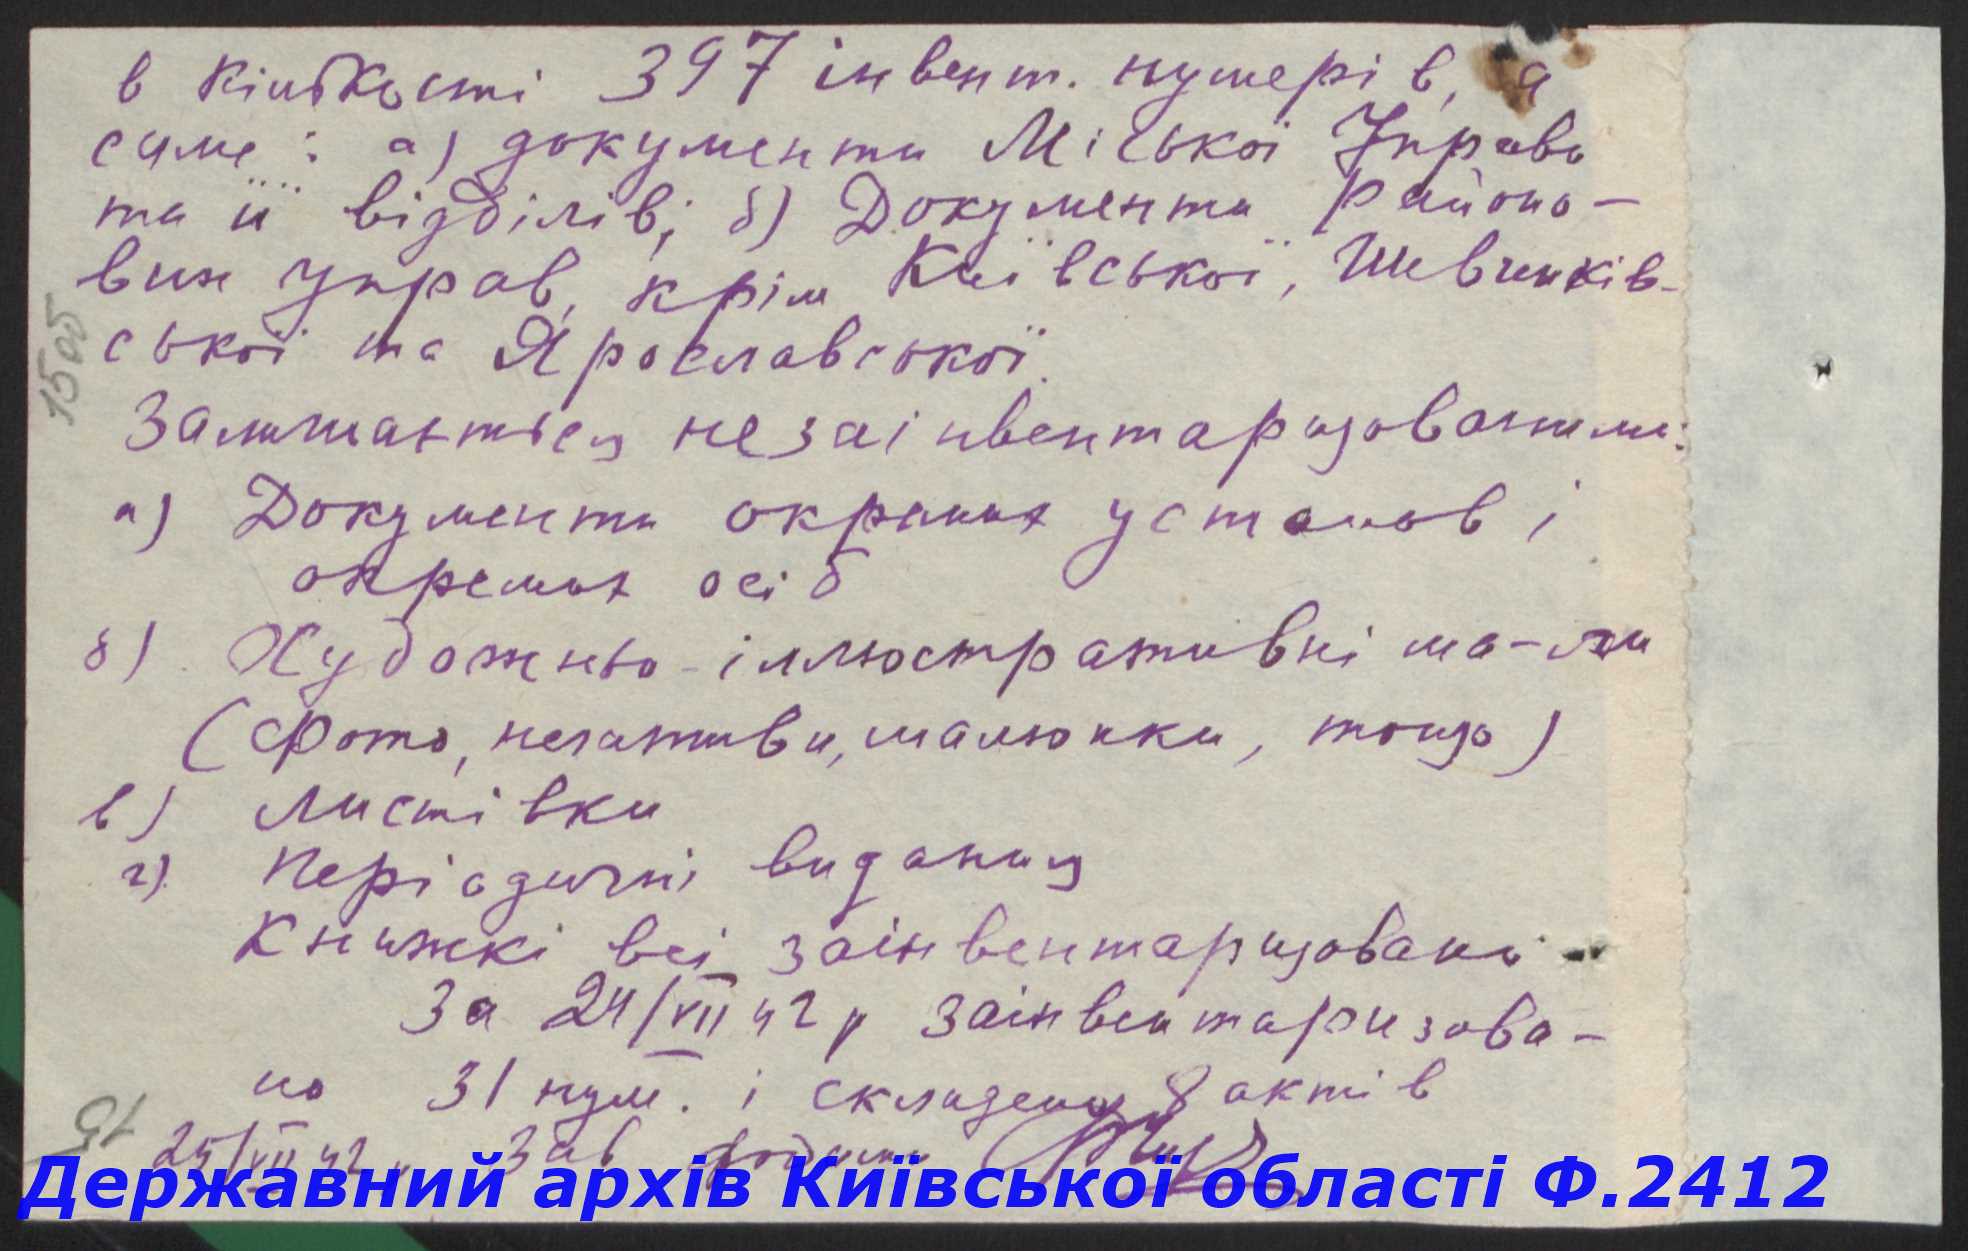 в кількості 397 інвент. нумерів, а
саме: а) документи Міської Управи
та її відділів; б) Документи Районо-
вих Управ, крім Київської, Шевченків-
ської та Ярославської.
Залишаються незаінвентаризованими:
а) Документи окремих установ і
окремих осіб
б) Художньо-іллюстративні ма-ли
(фото, негативи, малюнки, тощо)
в) листівки
г) Періодичні видання
Книжкі всі заінвентаризовани
За 24/VII 42 р заінвентаризова-
но 31 нум. і складено 8 актів
25/VII 42 р. Зав
15об
15
Державний архів Київської області Ф.2412